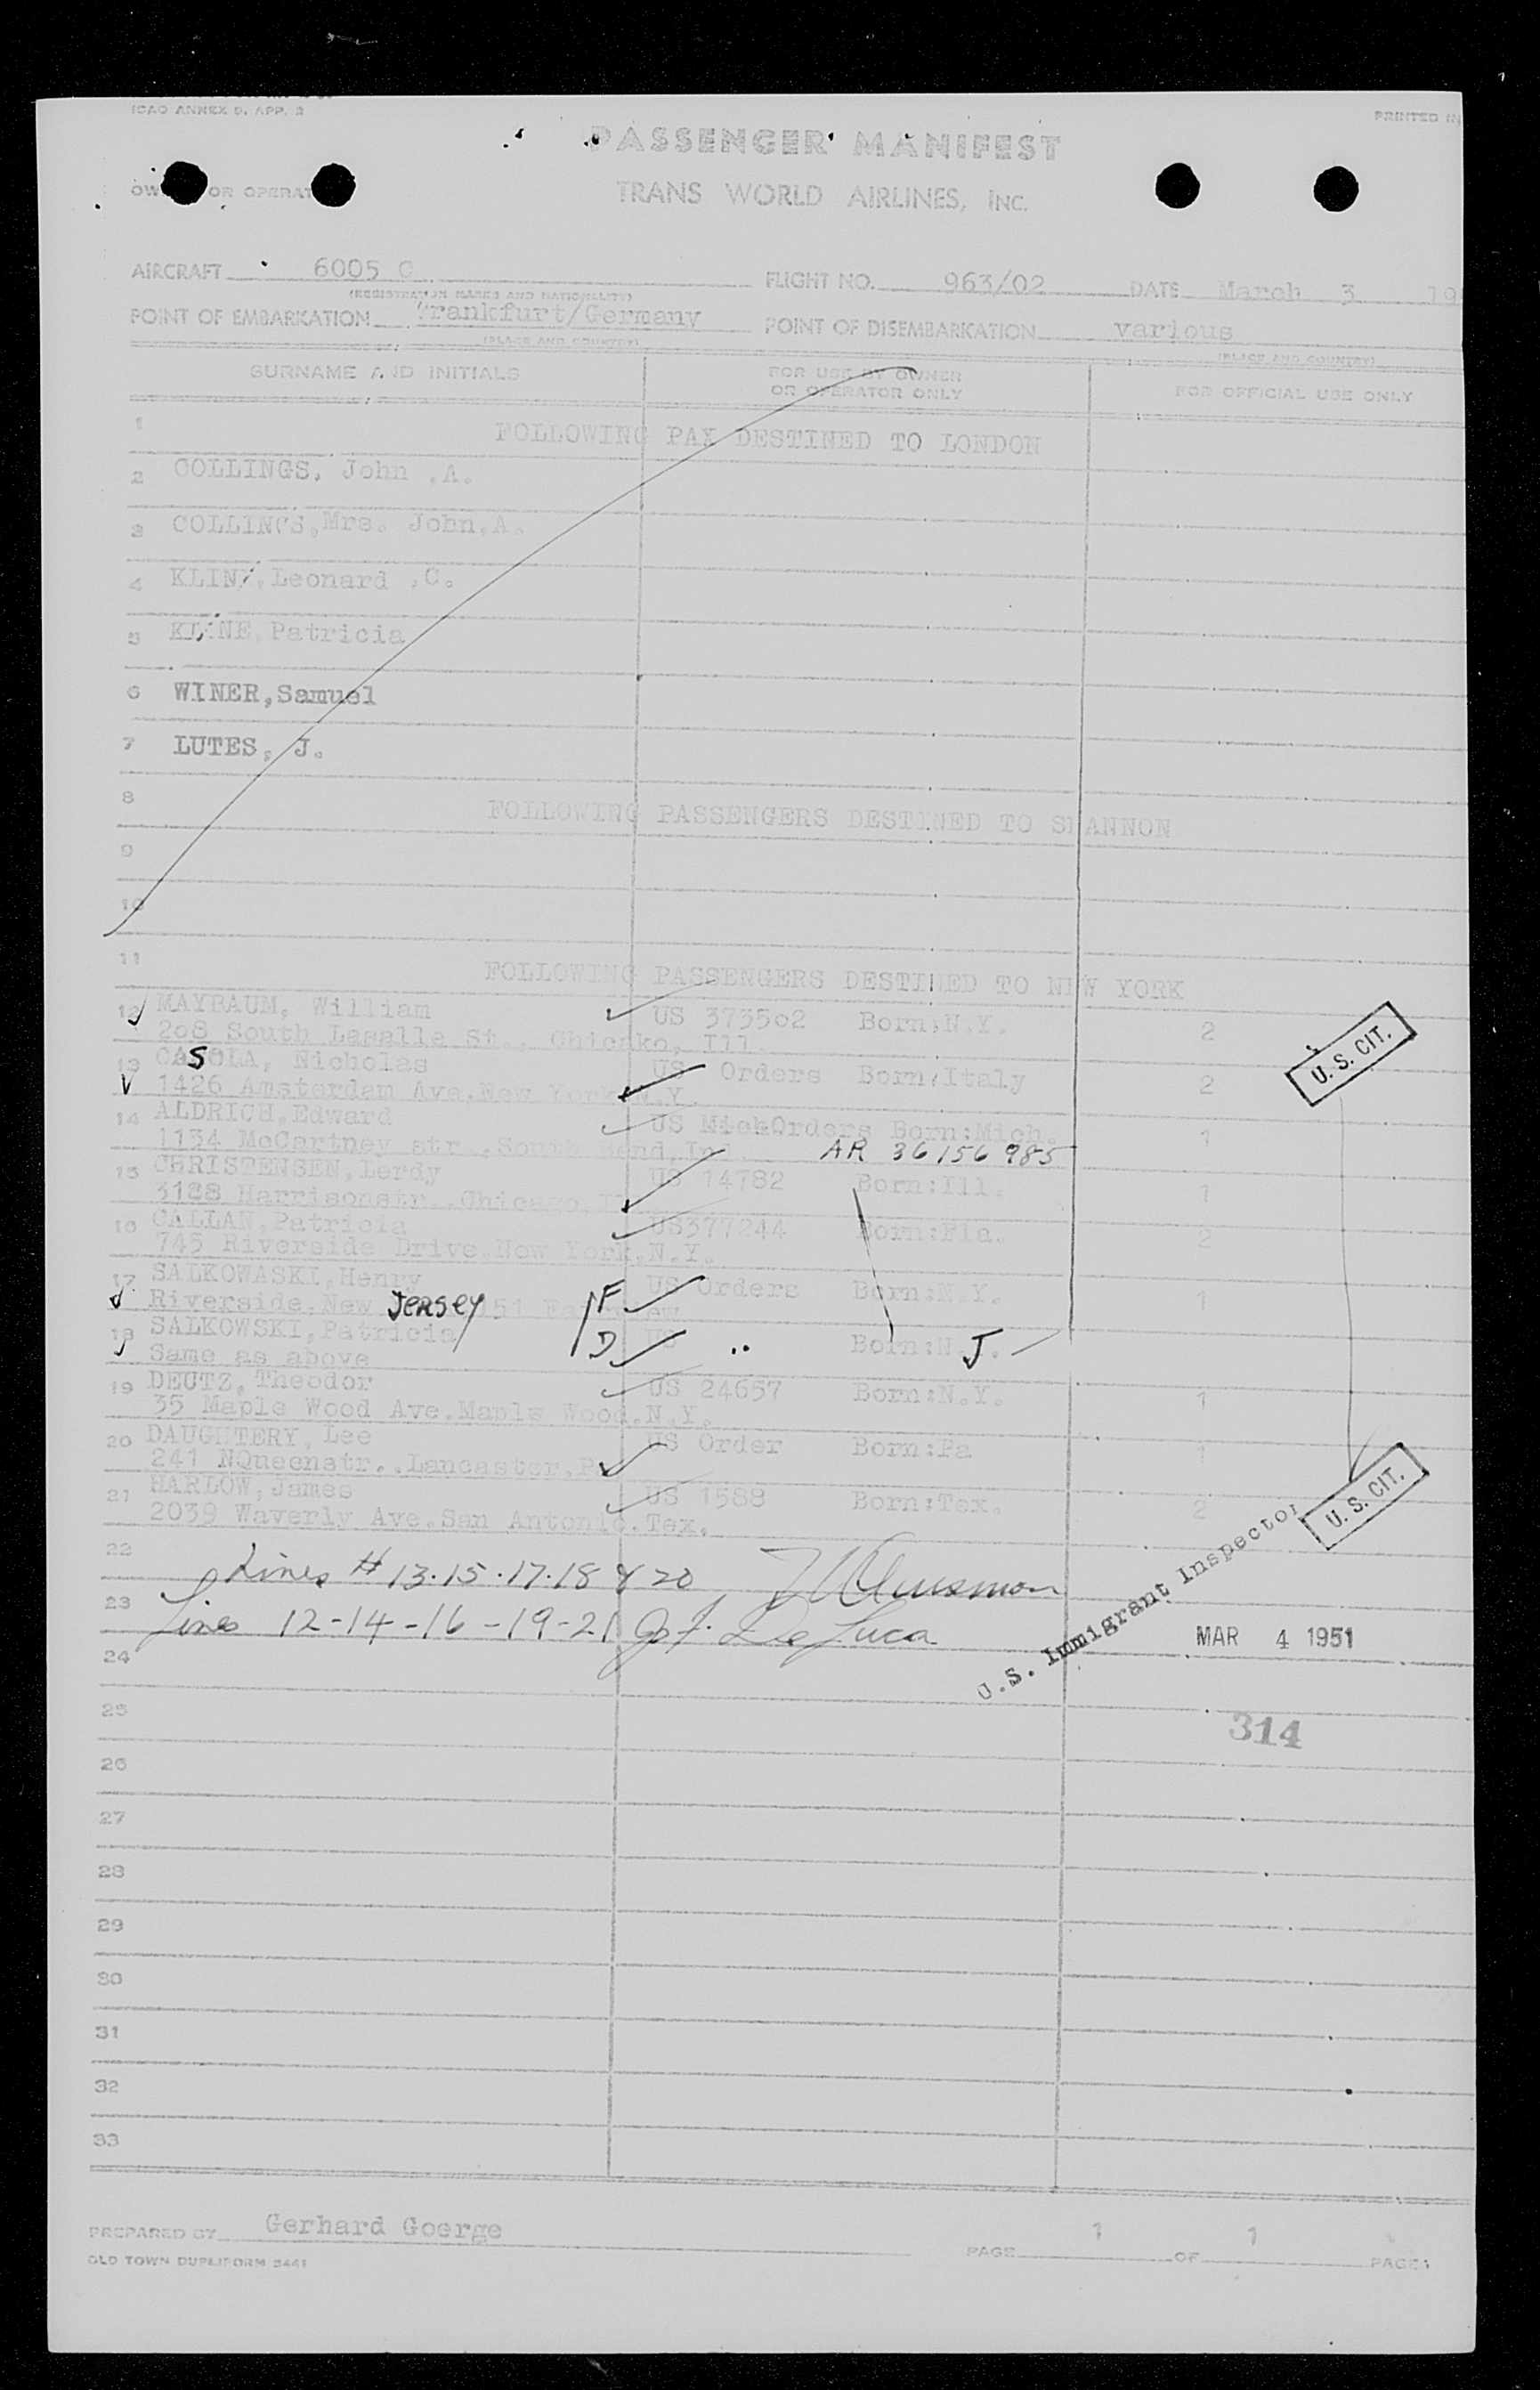 ICAO ANNEX 9, APP. 3
PRINTED IN
PASSENGER MANIFEST
OR OPERAT
TRANS WORLD AIRLINES, INC.
AIRCRAFT 6005 C
FLIGHT NO. 963/02 DATE March 3 19
(REGISTRATION MARKS AND NATIONALITY)
POINT OF EMBARKATION Frankfurt/Germany POINT OF DISEMBARKATION various
(PLACE AND COUNTRY) (PLACE AND COUNTRY)
SURNAME AND INITIALS FOR USE BY OWNER OR OPERATOR ONLY FOR OFFICIAL USE ONLY
1 FOLLOWING PAX DESTINED TO LONDON
2 COLLINGS, John .A.
3 COLLINGS,Mrs. John.A.
4 KLINE,Leonard ,C.
5 KLINE,Patricia
6 WINER,Samuel
7 LUTES, J.
8 FOLLOWING PASSENGERS DESTINED TO SHANNON
9
10
11 FOLLOWING PASSENGERS DESTINED TO NEW YORK
12 MAYBAUM, William US 373502 Born,N.Y. 2
208 South Lasalle St., Chicako, Ill.
13 CASOLA, Nicholas US Orders Born,Italy 2
1426 Amsterdam Ave.New York N.Y.
14 ALDRICH,Edward US Orders Born:Mich. 1
1134 McCartney str.,South Bend,Ind. AR 36156985
15 CHRISTENSEN,Leroy US 14782 Born:Ill. 1
3188 Harrisonstr..Chicago,
16 CALLAN,Patricia US377244 Born:Fla. 2
745 Riverside Drive.New York.N.Y.
17 SALKOWASKI,Henry F US Orders Born:N.Y. 1
Riverside.New JERSEY 151
18 SALKOWSKI,Patricia D US .. Born:N.J.
Same as above
19 DEUTZ, Theodor US 24657 Born:N.Y. 1
35 Maple Wood Ave.Maple Wood.N.Y.
20 DAUGHTERY, Lee US Order Born:Pa 1
241 NQueenstr..Lancaster,Pa
21 HARLOW,James US 1588 Born:Tex. 2
2039 Waverly Ave.San Antonio.Tex.
U.S. CIT.
U.S. CIT.
22 Lines # 13.15.17.18 & 20
23 Lines 12-14-16-19-21 De Luca
U.S. Immigrant Inspector
MAR 4 1951
24
25 314
26
27
28
29
30
31
32
33
PREPARED BY Gerhard Goerge PAGE 1 OF 1 PAGES
OLD TOWN DUPLIFORM 3441